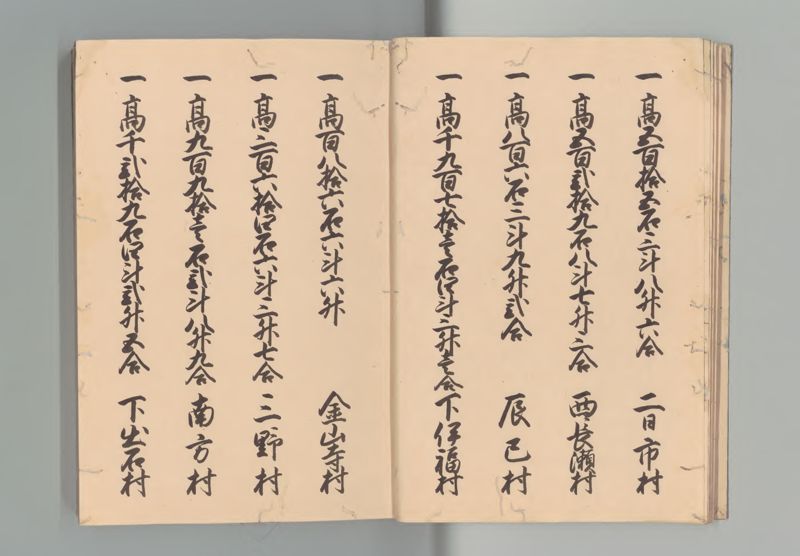 一 高五百拾五石三斗八升六合 二日市村
一 高五百弐拾九石八斗七升三合 西長瀬村
一 高八百六石三斗九升弐合 辰巳村
一 高千九百七拾壱石四斗三升壱合 下伊福村
一 高百八拾六石六斗六升 金山寺村
一 高三百六拾四石六斗三升七合 三野村
一 高九百九拾壱石弐斗八升九合 南方村
一 高千弐拾九石四斗弐升五合 下出石村